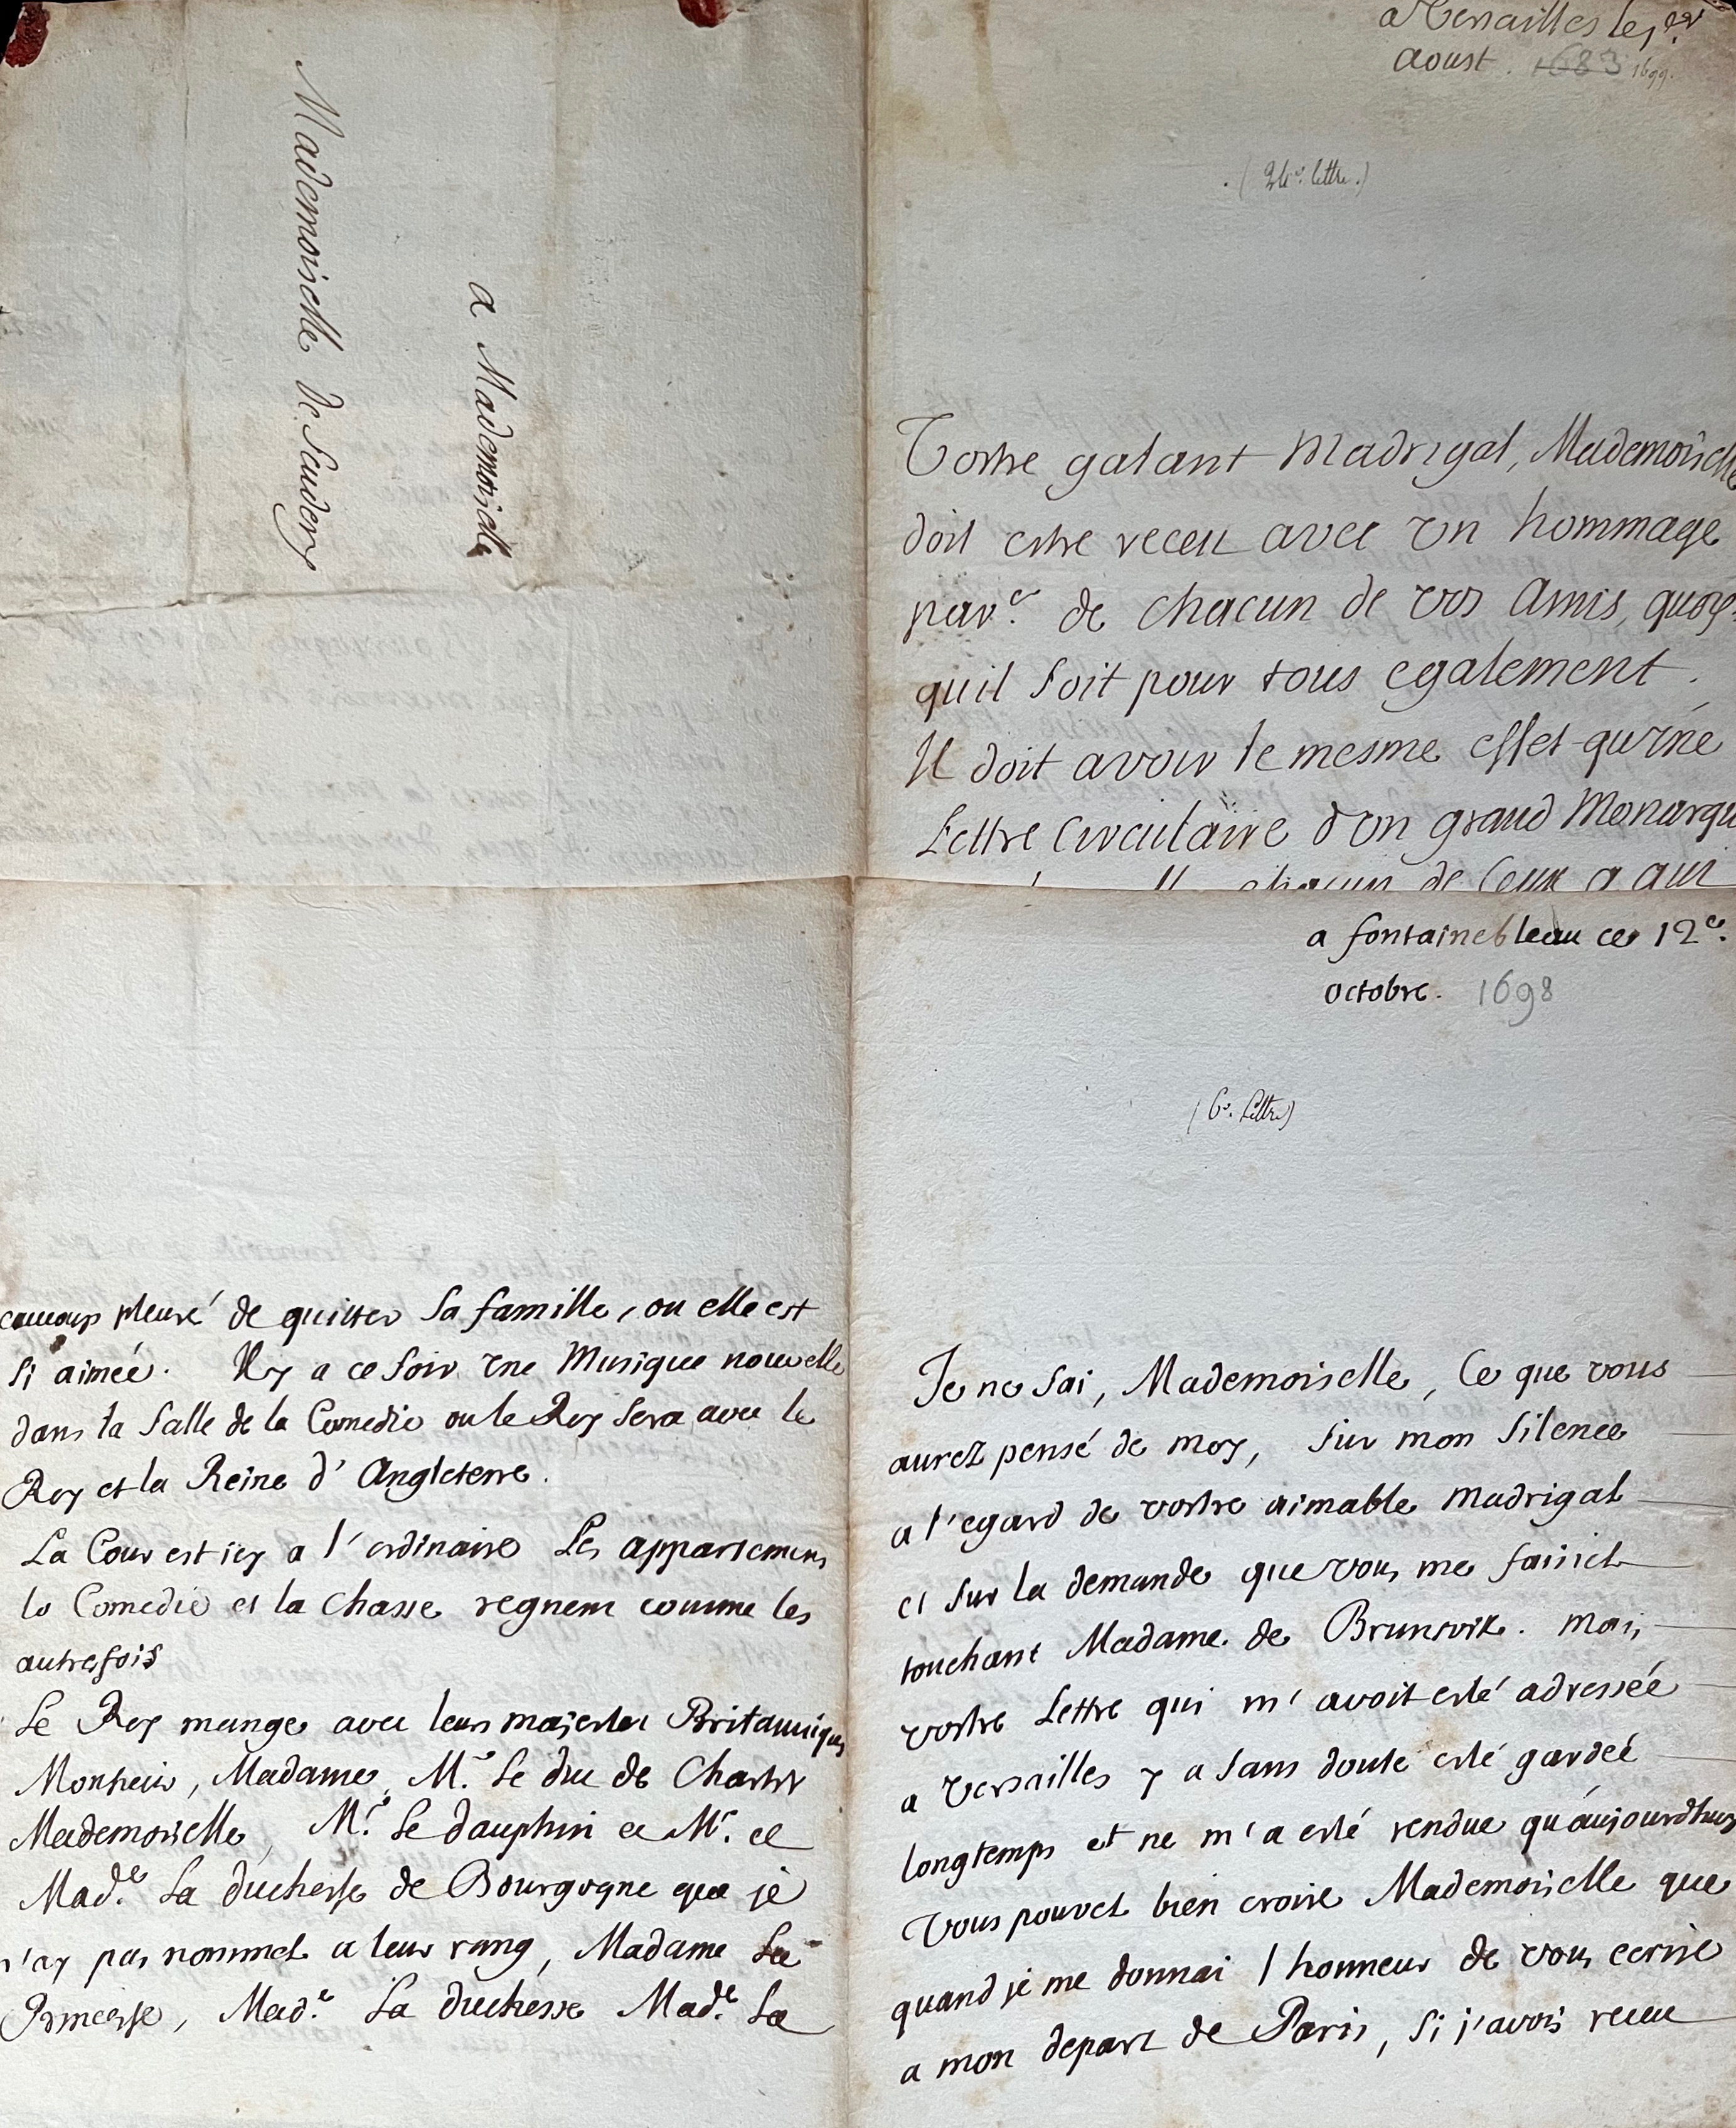 a Mademoiselle
Mademoiselle de Scudery
a Versailles le 1er
Aoust. 1683 1699.
(24e. lettre.)
Vostre galant Madrigal, Mademoiselle
doit estre receu avec un hommage
par.er de chacun de vos Amis, quoy
quil soit pour tous egalement.
Il doit avoir le mesme effet qu'une
Lettre Circulaire d'un grand Monarque
chacun de Ceux a qui
caucoup pleuré de quitter sa famille, ou elle est
si aimée. Il y a ce soir une Musique nouvelle
dans la Salle de la Comedie ou le Roy sera, avec le
Roy et la Reine d'Angleterre.
La Cour est icy a l'ordinaire Les appartemens
la Comedie et la Chasse regnent comme les
autresfois
Le Roy mange avec leurs majestez Britanniques
Monsieur, Madame, Mr. Le duc de Chartres
Mademoiselle, Mr. Le dauphin et Mr. et
Made. La duchesse de Bourgogne que je
n'ay pas nommez a leur rang, Madame La
Princesse, Made. La duchesse Made. La
a fontainebleau ce 12e.
octobre. 1698
(6e. Lettre)
Je ne sai, Mademoiselle, Ce que vous
aurez pensé de moy, sur mon silence
a l'egard de vostre aimable Madrigal
et sur la demande que vous me faisiez
touchant Madame de Brunsvik. mais
vostre Lettre qui m'avoit esté adressée
a Versailles y a sans doute esté gardeé
longtemps et ne m'a esté rendue qu'aujourdhuy
Vous pouvez bien croire Mademoiselle que
quand je me donnai l'honneur de vous ecrire
a mon depart de Paris, si j'avois receu